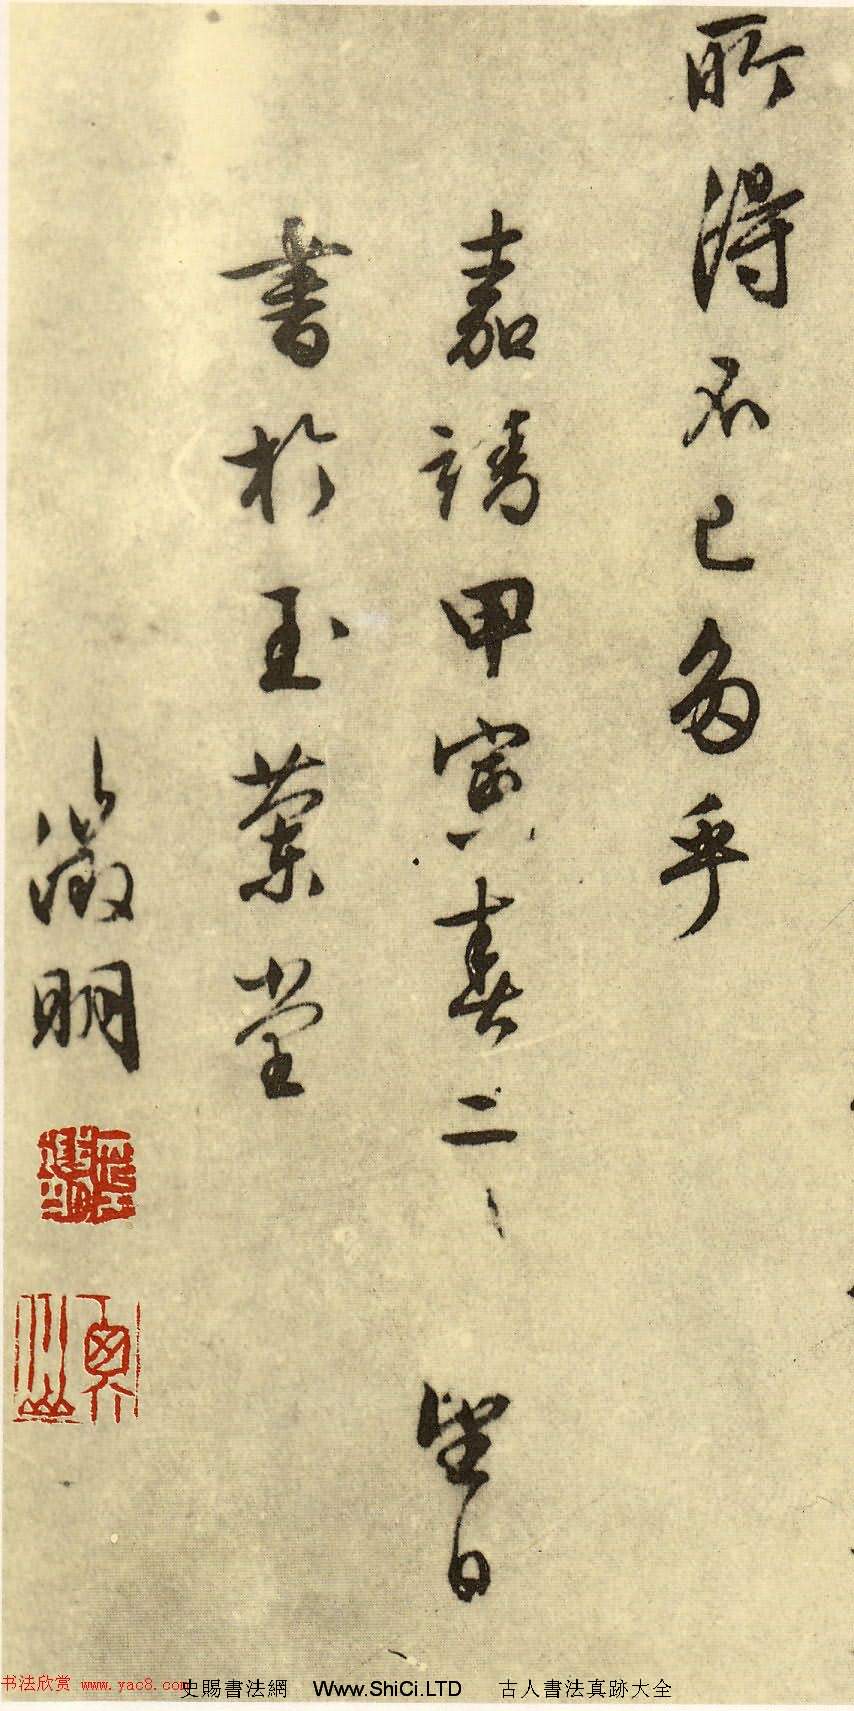 所得不已多乎
嘉靖甲寅春二 望日
書於玉蘭堂
徵明
书法欣赏 www.yac8.com
史賜書法網 Www.ShiCi.LTD 古人書法真跡大全